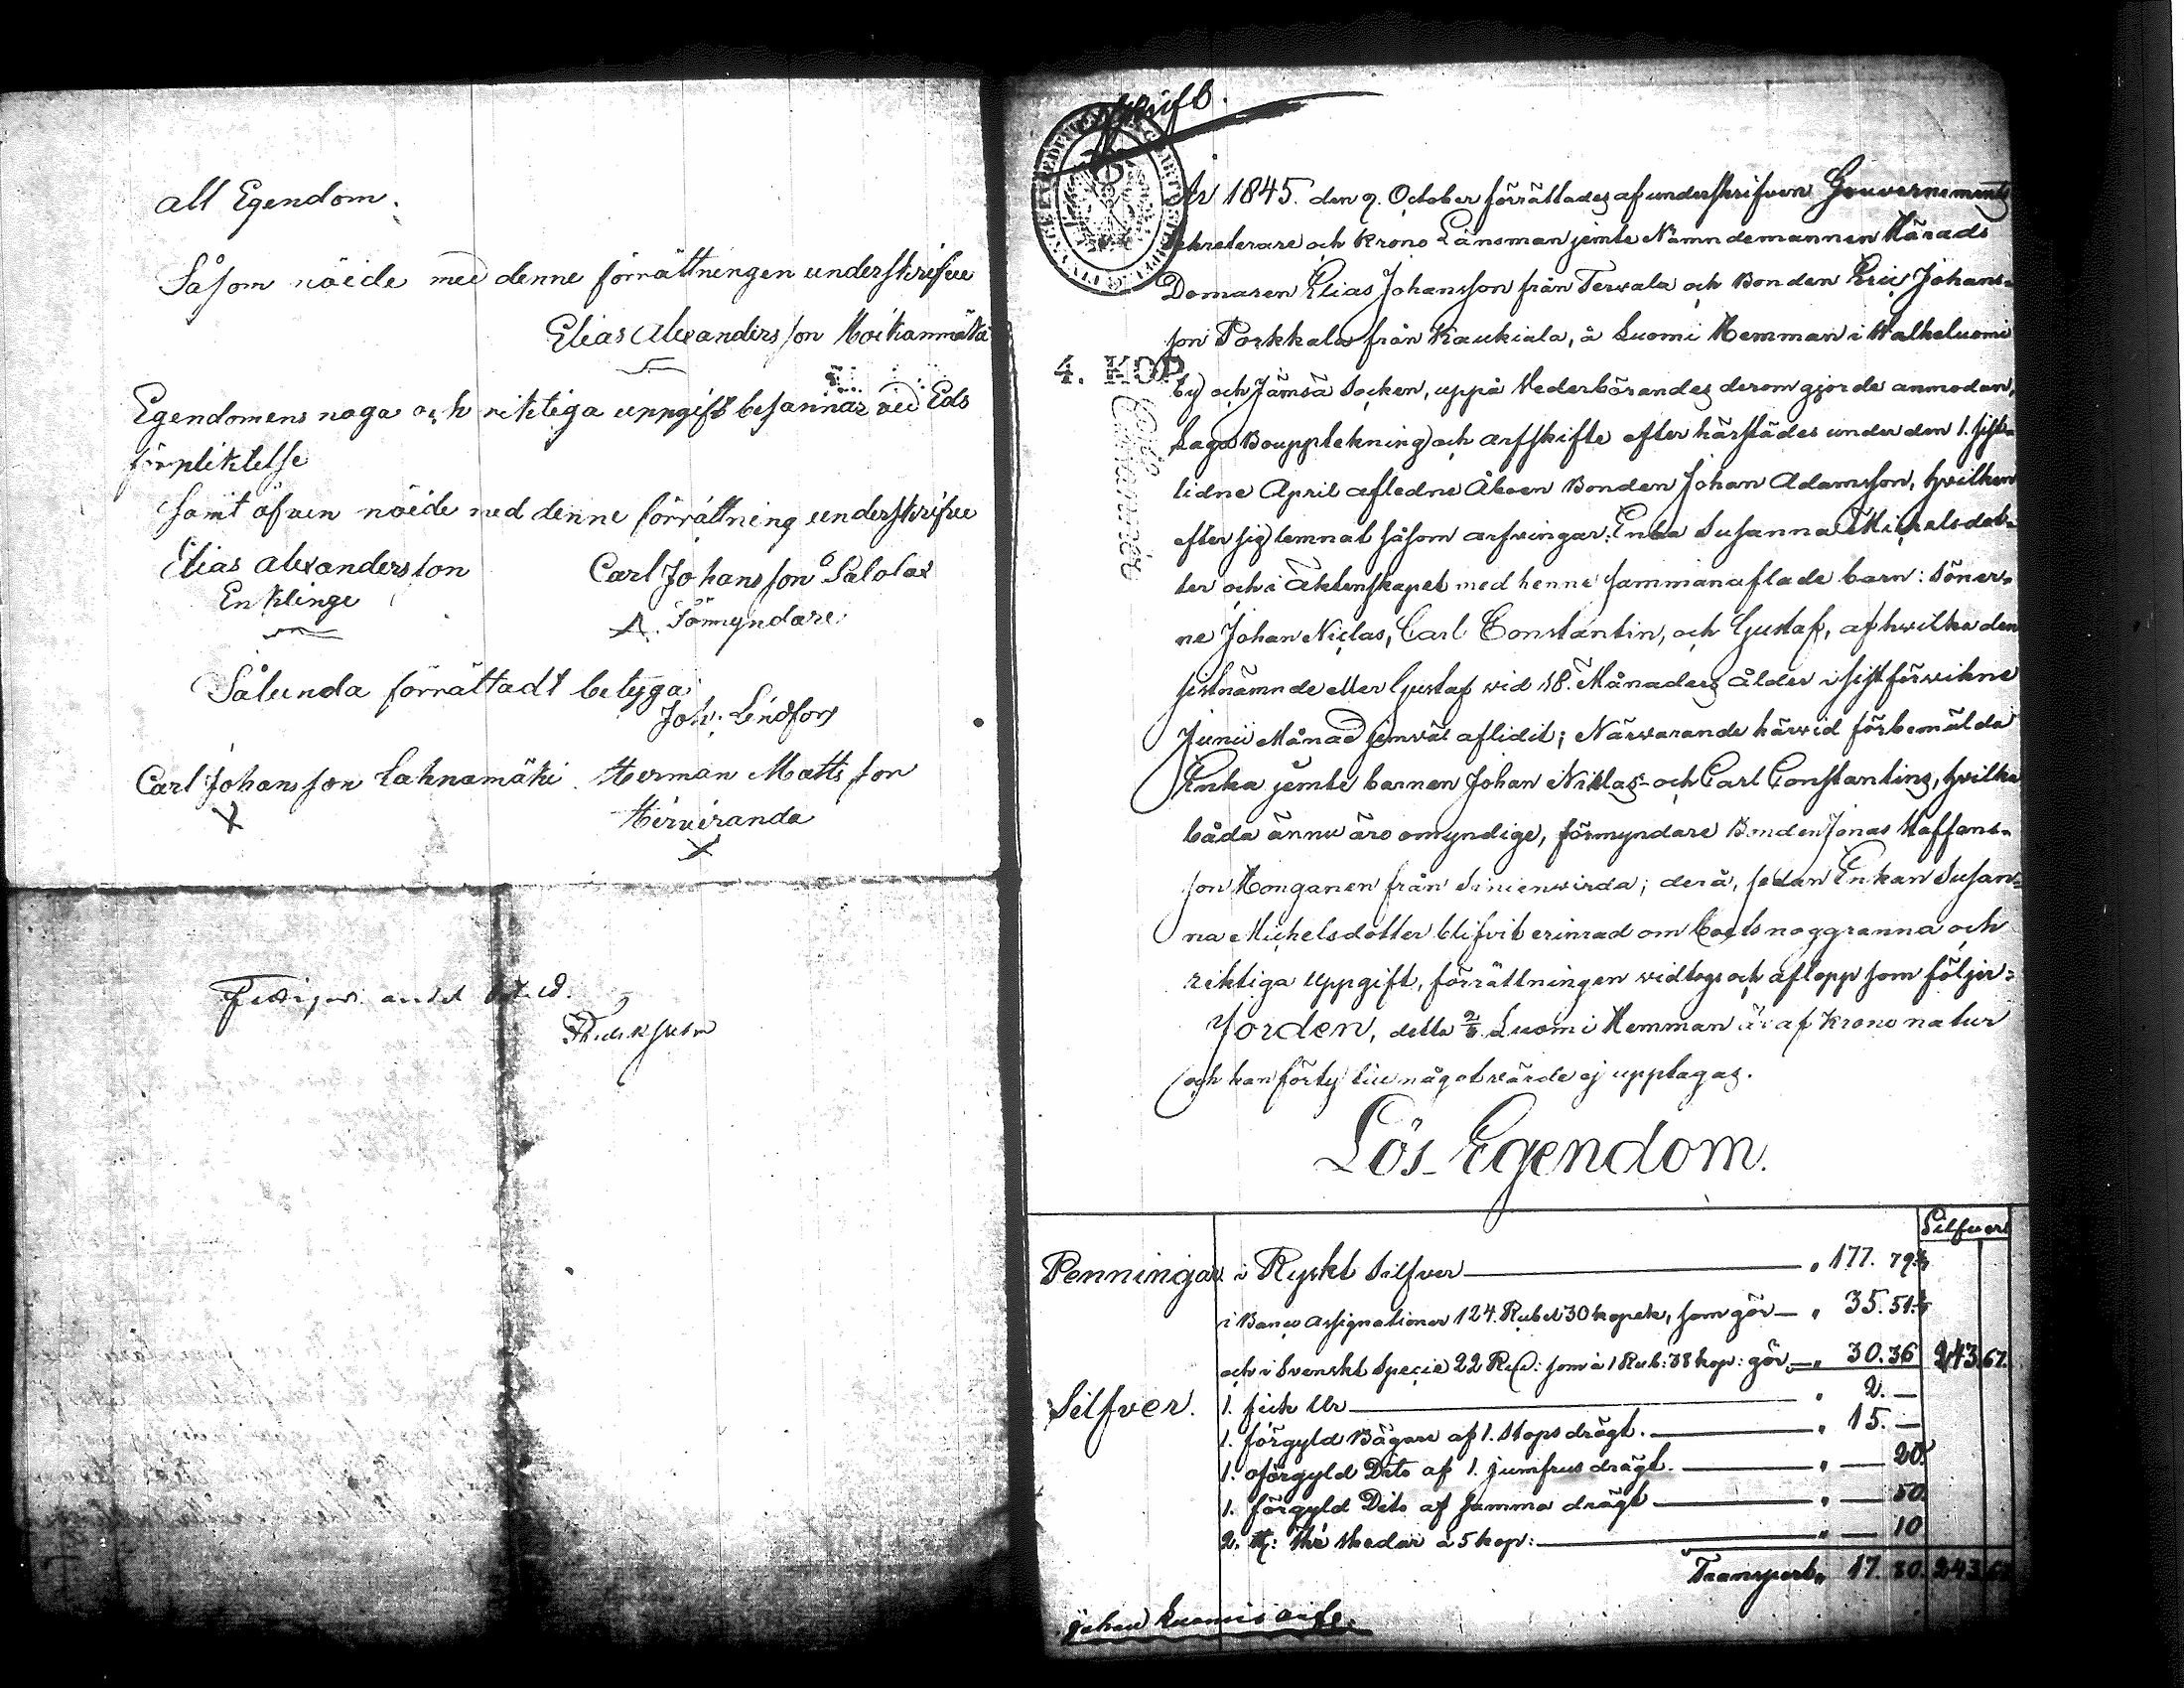 all Egendom.
Såsom nöide med denne förrättningen underskrifva
Elias Alexandersson Moikanmäki
Egendomens noga och riktiga uppgift besannar vid Eds
förpliktelse
samt äfven nöide med denne förrättning underskrifva
Elias Alexandersson
Enklinge
Carl Johansson Salolax
Förmyndare
Sålunda förrättadt betyga
Joh: Lindfors
Carl Johansson Lahnamäki
X
Herman Mattsson
Hirviranda
X
Afskrift.
År 1845. den 9. October förrättades af underskrifven Gouvernements
Sekreterare och Krono Länsman jemte Nämndemannen Härads
Domaren Elias Johansson från Tervala och Bonden Eric Johans-
son Porkkala från Kaukiala, å Luomi Hemman i Halkeluomi
4. KOP
by och Jämsä Socken, uppå Vederbörandes derom gjorde anmodan,
Laga Bouppteckning och arfskifte efter härstädes under den 1. sist-
lidne April afledne Åboen Bonden Johan Adamsson, hvilken
efter sig lemnat såsom arfvingar: Enka Susanna Michelsdot-
ter och i äktenskapet med henne sammanaflade barn: Söner-
ne Johan Niclas, Carl Constantin, och Gustaf, af hvilka den
sistnämnde eller Gustaf vid 18. Månaders ålder i sistförvikne
Junii Månad jemväl aflidit; Närvarande härvid förbemälda
Enka jemte barnen Johan Niklas- och Carl Constantins, hvilka
båda ännu äro omyndige, förmyndare Bonden Jonas Staffans-
son Honganen från Sinienvirda; derå, sedan Enkan Susan-
na Michelsdotter blifvit erinrad om boets noggranna och
riktiga uppgift, förrättningen vidtogs och aflopp som följer:
Jorden, detta Luomi Hemman är af Krono natur
och kan förty till något värde ej upptagas.
Lös Egendom.
Silfver
Penningar i Ryskt Silfver " 177. 79
i Banco Assignationer 124. Rubel 30 kopek, som gör " 35. 51
och i Svenskt Specie 22 Rd: som à 1 Rub: 38 kop: gör " 30. 36 243.67.
Silfver. 1. fick Ur " 2. —
1. förgyld Bägare af 1. Stops drägt. " 15. —
1. oförgyld Dito af 1. jumfrus drägt. " — 20.
1. förgyld Dito af samma drägt " — 50.
2. st: Thé Skedar à 5 kop: " — 10
Transport " 17. 80. 243.67
Johan Luomis arfs.